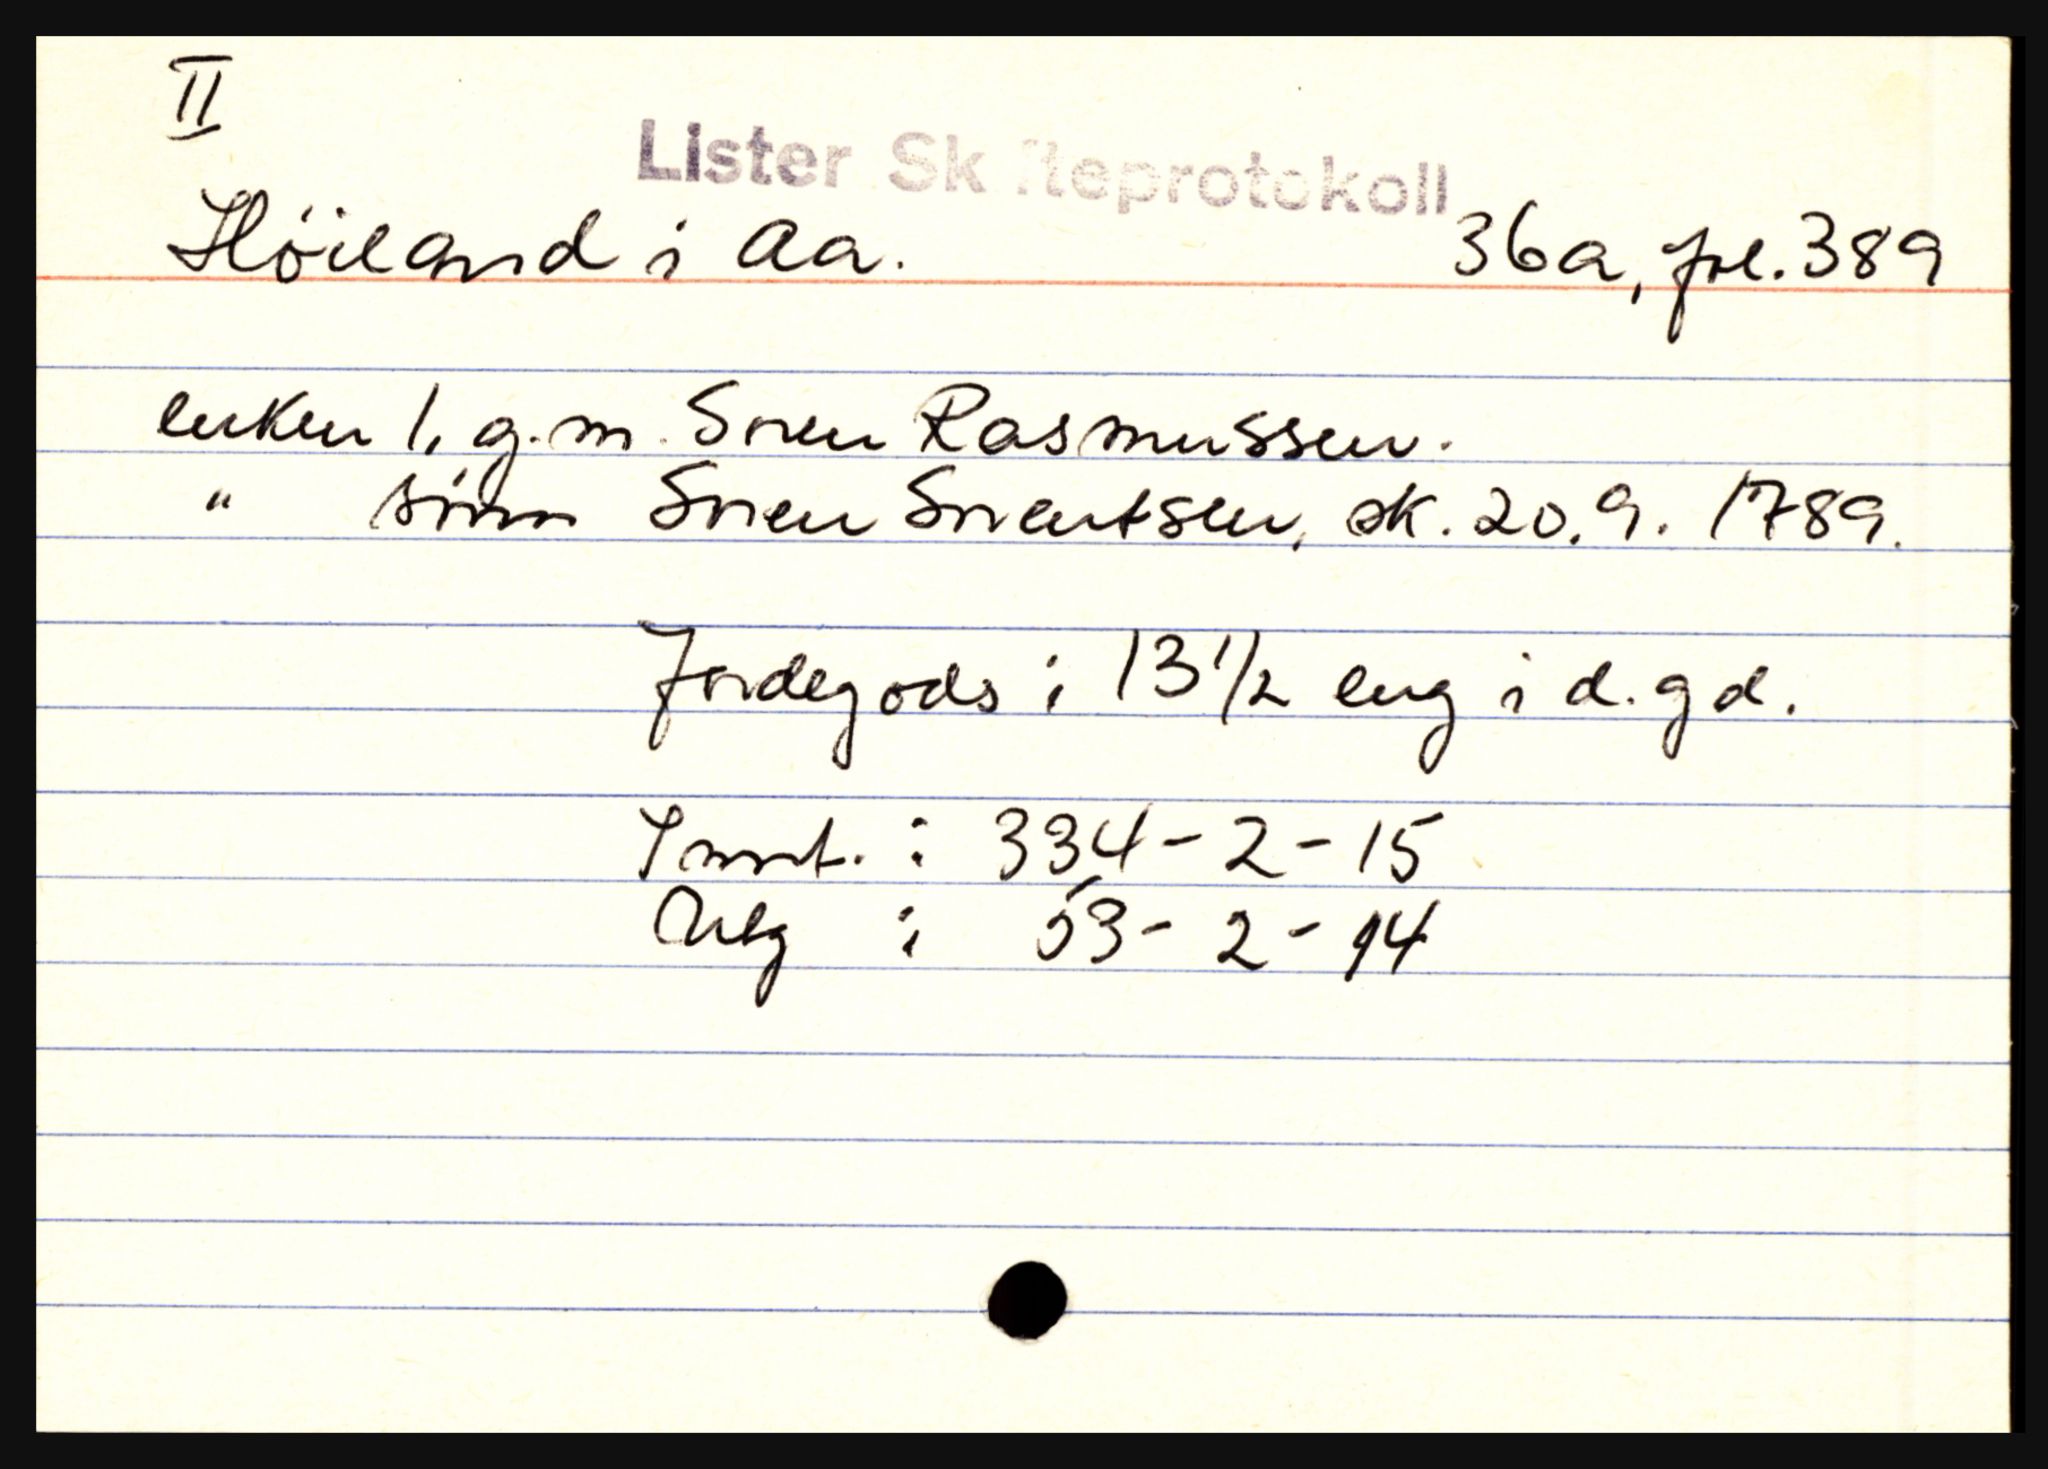 II
Lister Skifteprotokoll
Höiland i Aa. 36a, fol. 389
enken 1, g.m. Sven Rasmussen.
" sönn Sven Sventsen, sk. 20.9. 1789.
Jordegods i 13 1/2 eng i d. gd.
Innt. : 334-2-15
Utg : 53-2-14